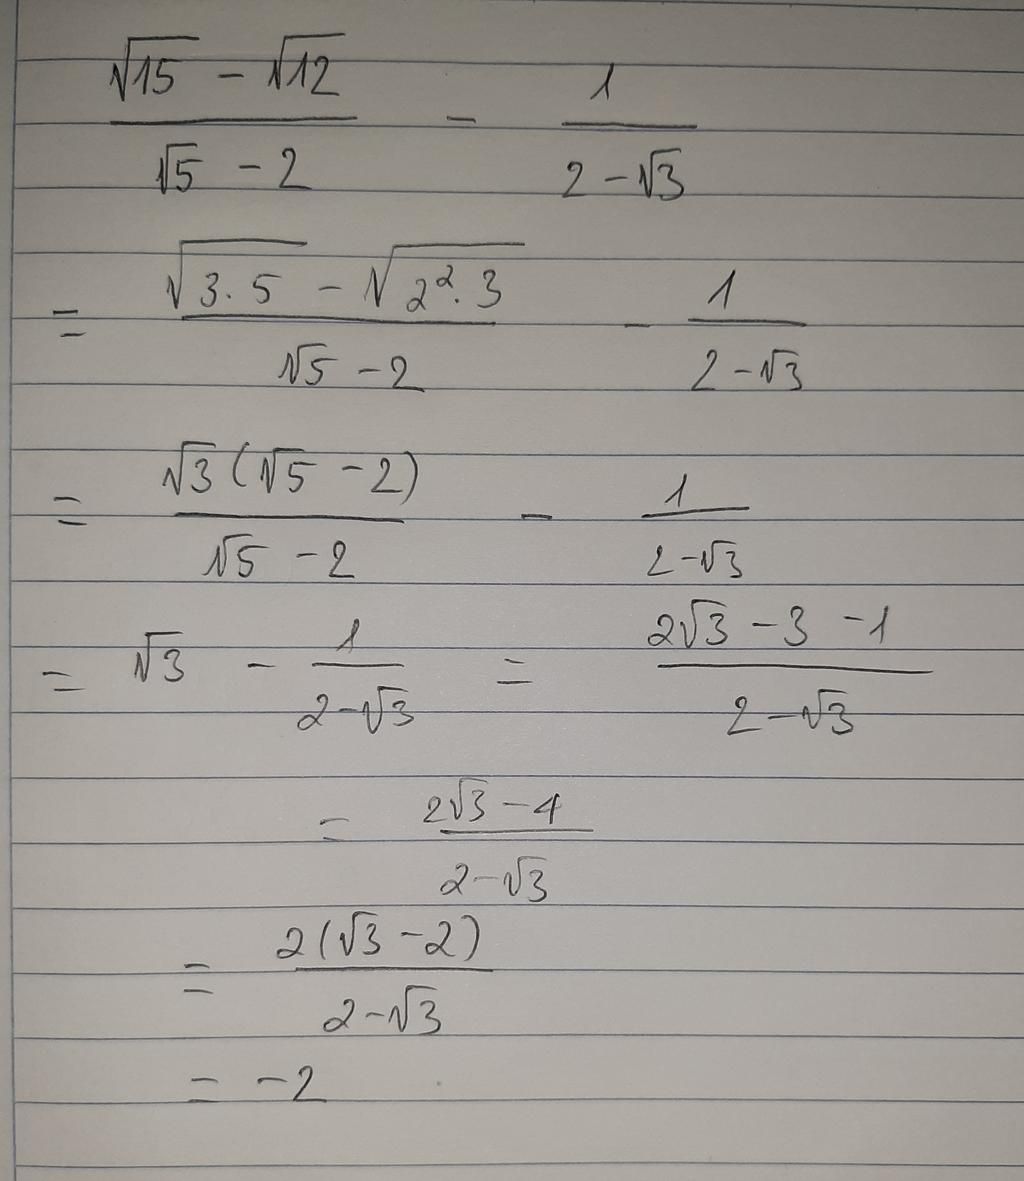 (√15 - √12)/(√5 - 2) - 1/(2 - √3)
= (√(3.5) - √(2².3))/(√5 - 2) - 1/(2 - √3)
= √3(√5 - 2)/(√5 - 2) - 1/(2 - √3)
= √3 - 1/(2 - √3) = (2√3 - 3 - 1)/(2 - √3)
= (2√3 - 4)/(2 - √3)
= 2(√3 - 2)/(2 - √3)
= -2